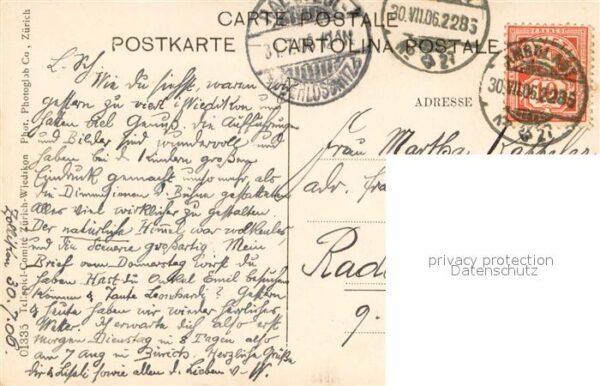 CARTE POSTALE
POSTKARTE CARTOLINA POSTALE
30.VII.06.22 85
30.VII.06.22 85
ADRESSE
Phot. Photoglob Co., Zürich
01335 Tellspiel-Comité Zürich-Wiedikon
Wie du siehst, waren wir
gestern zu viert i Wiedikon und
haben viel Genuß. Die Aufführungen
und Bilder sind wundervoll und
haben bei d. Kindern großen
Eindruck gemacht umso mehr, als
die Dimensionen d. Bühne gestatteten
Alles viel wirklicher zu gestalten.
Der natürliche Himmel war wolkenlos
und die Scenerie großartig. Mein
Brief vom Donnerstag wirst du
haben. Hast du Onkel Emil besuchen
können & Tante Leonhardi? Gestern
& heute haben wir wieder herrliches
Wetter. Ich erwarte dich also erst
morgen Dienstag in 8 Tagen also
am 7 Aug in Zürich. Herzliche Grüße
sowie allen d. Lieben
Zollikon 30.7.06.
Frau Martha Kappeler
adr. Frau
Rad
9.
privacy protection
Datenschutz